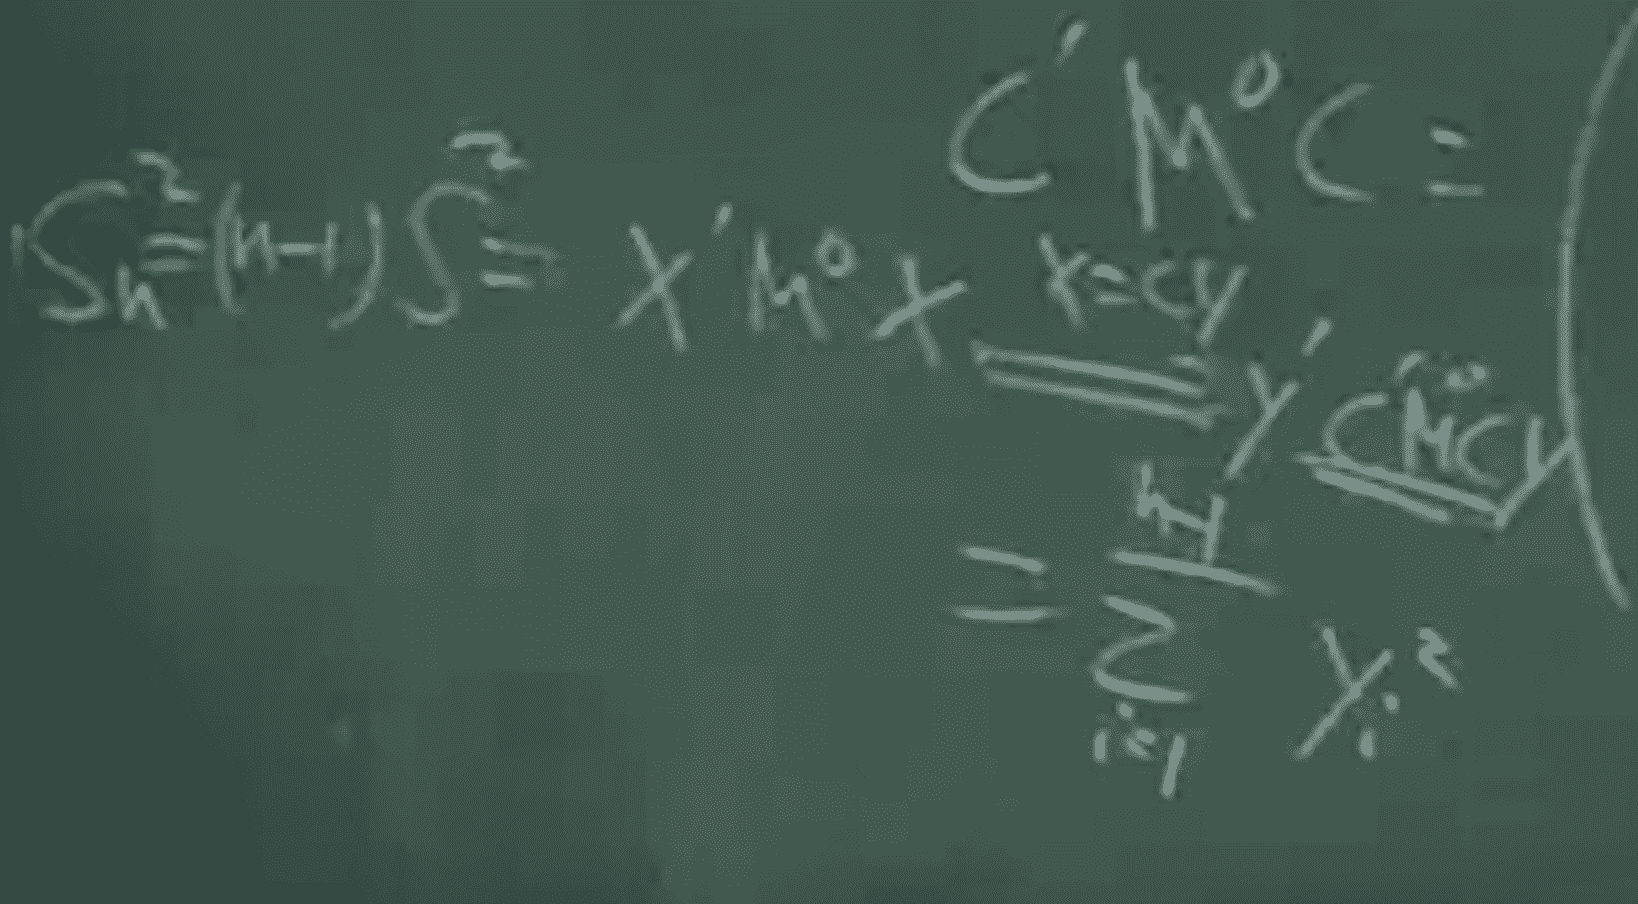 C′ M⁰ C = (
Sₙ² = (n-1) S² = X′ M⁰ X
X = CY
= Y′ C′M⁰C Y
n-1
= Σ Yᵢ²
i=1